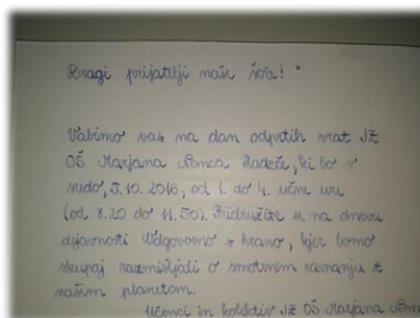 Dragi prijatelji naše šole!
Vabimo vas na dan odprtih vrat JZ
OŠ Marjana Nemca Radeče, ki bo v
sredo, 5.10.2016, od 1. do 4. učne ure
(od 8.20 do 11.50). Pridružite se na dnevu
dejavnosti Odgovorno s hrano, kjer bomo
skupaj razmišljali o smotrnem ravnanju z
našim planetom.
Učenci in kolektiv JZ OŠ Marjana